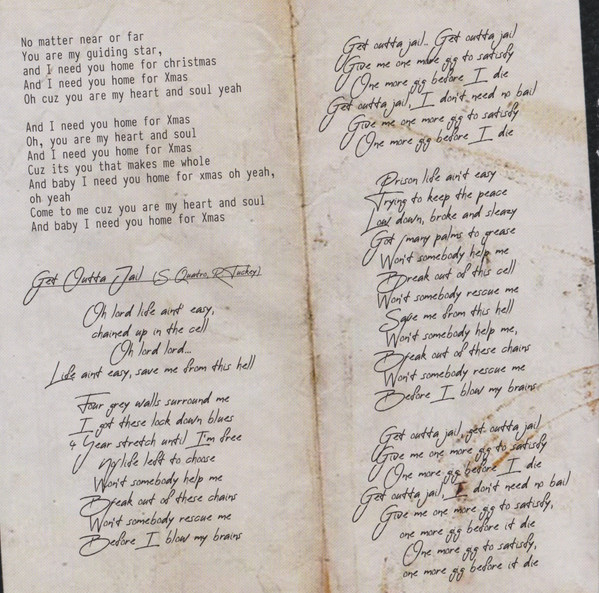 No matter near or far
You are my guiding star,
and I need you home for christmas
And I need you home for Xmas
Oh cuz you are my heart and soul yeah
And I need you home for Xmas
Oh, you are my heart and soul
And I need you home for Xmas
Cuz its you that makes me whole
And baby I need you home for xmas oh yeah,
oh yeah
Come to me cuz you are my heart and soul
And baby I need you home for Xmas
Get Outta Jail (S Quatro, R Tuckey)
Oh lord life aint' easy,
chained up in the cell
Oh lord lord...
Life aint easy, save me from this hell
Four grey walls surround me
I got these lock down blues
4 Year stretch until I'm free
No life left to choose
Won't somebody help me
Break out of these chains
Won't somebody rescue me
Before I blow my brains
Get outta jail.. Get outta jail
Give me one more gg to satisfy
One more gg before I die
Get outta jail, I don't need no bail
Give me one more gg to satisfy
One more gg before I die
Prison life ain't easy
Trying to keep the peace
Low down, broke and sleazy
Got many palms to grease
Won't somebody help me
Break out of this cell
Won't somebody rescue me
Save me from this hell
Won't somebody help me,
Break out of these chains
Won't somebody rescue me
Before I blow my brains
Get outta jail, get outta jail
Give me one more gg to satisfy
One more gg before I die
Get outta jail, I don't need no bail
Give me one more gg to satisfy,
one more gg before it die
One more gg to satisfy,
one more gg before it die